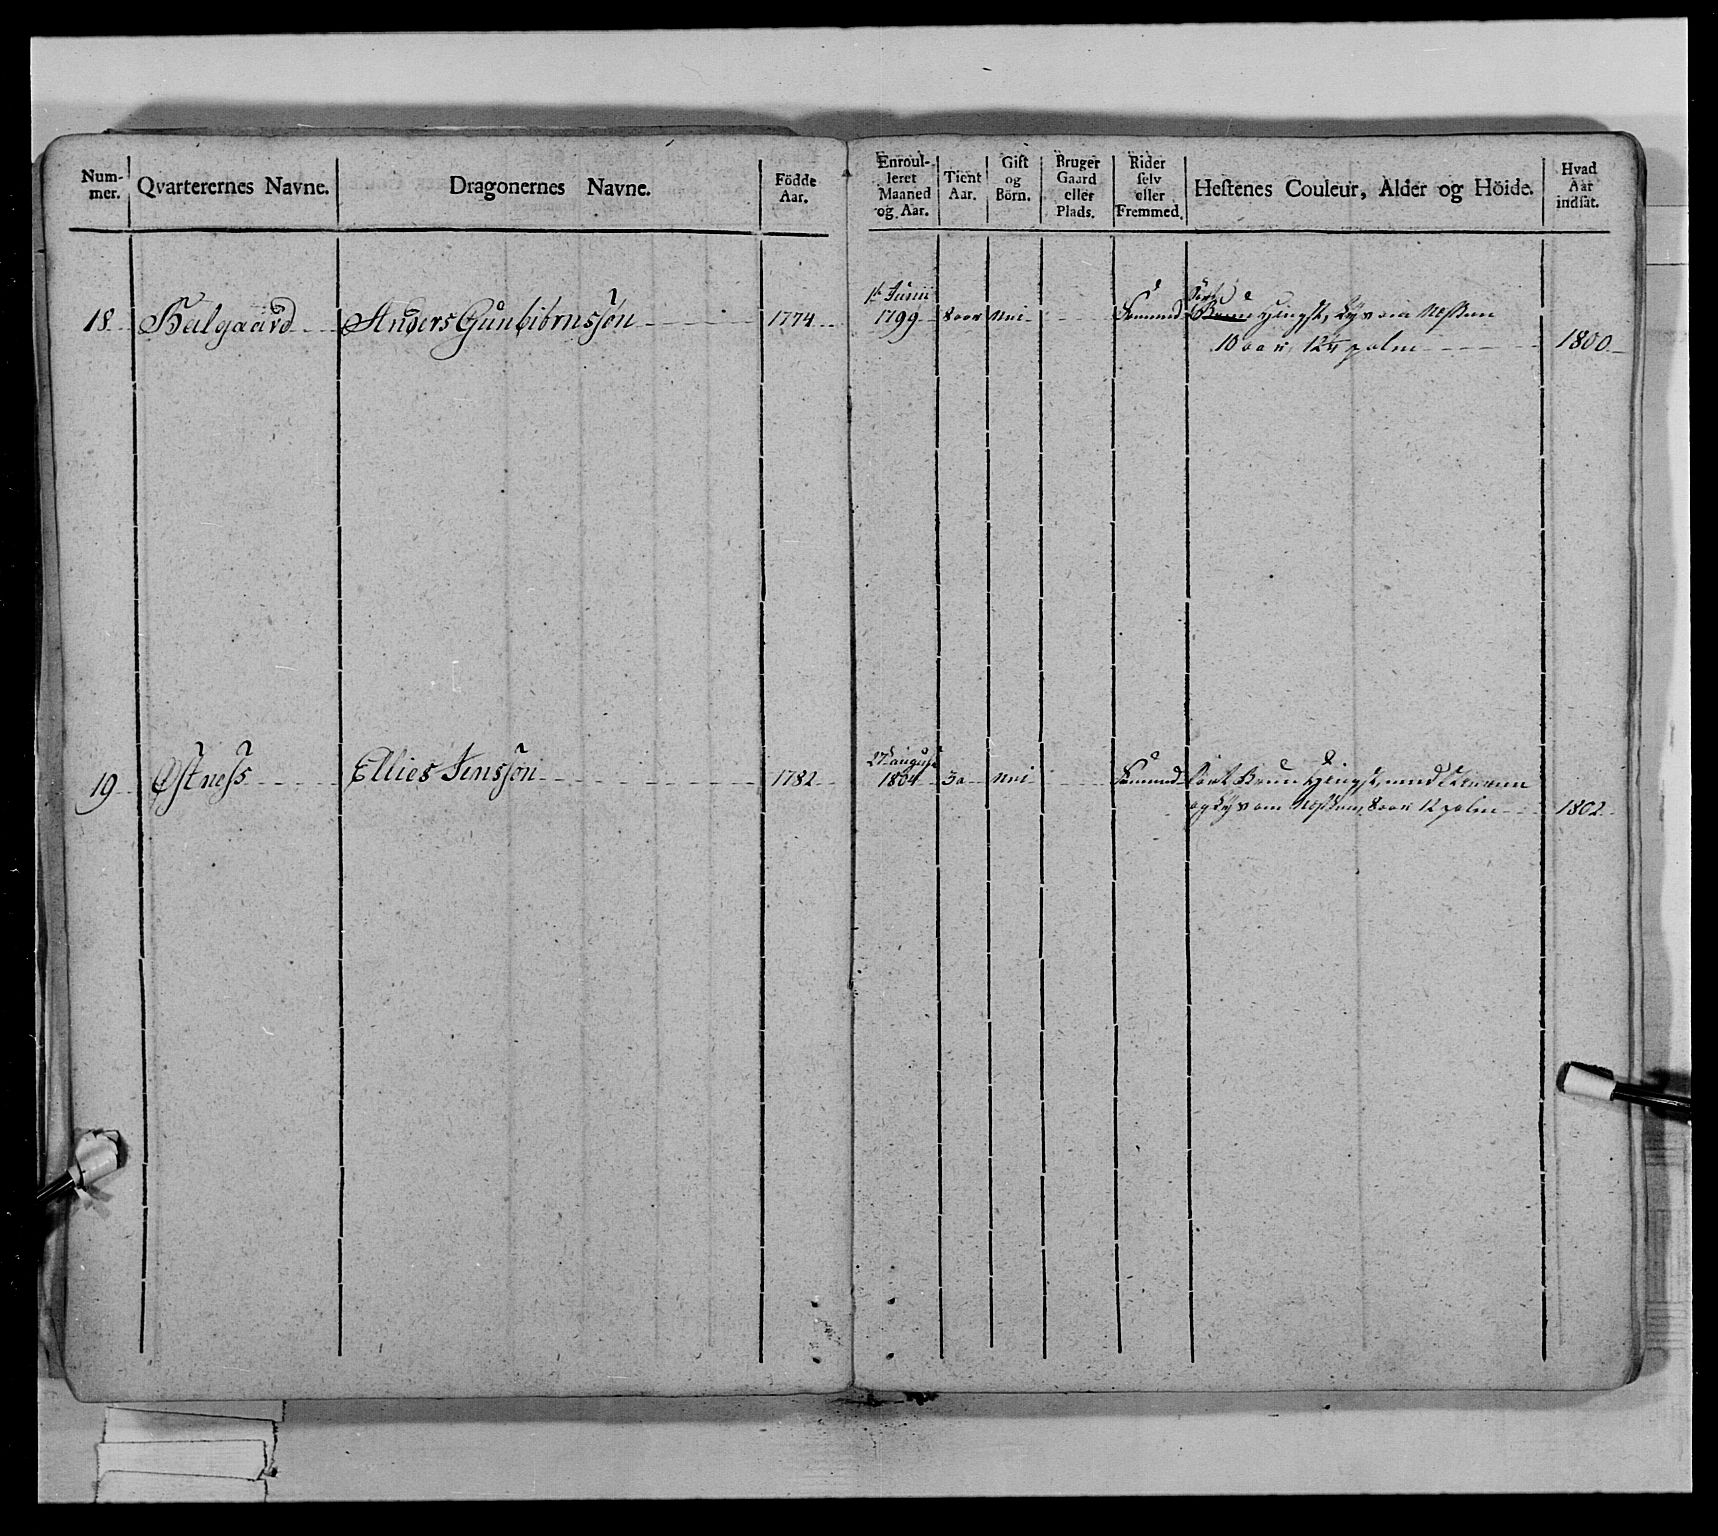 Num-
mer.
Qvarterernes Navne.
Dragonernes Navne.
Födde
Aar.
Enroul-
leret
Maaned
og Aar.
Tient
Aar.
Gift
og
Börn.
Bruger
Gaard
eller
Plads.
Rider
selv
eller
Fremmed.
Hestenes Couleur, Alder og Höide.
Hvad
Aar
indsat.
18 Helgaard Anders Gunbiörnsøn 1774
1ste Junii
1799 8 aar Nei Fremmed
Sort
Brun Hingst, Lys om Næsen
10 aar, 12 palm 1800
19 Østness Ellies Jensøn 1782
27 august
1804 3 Nei Fremmed Sort Brun Hingst, med
og Lys om Næsen, 8 aar 12 palm 1802